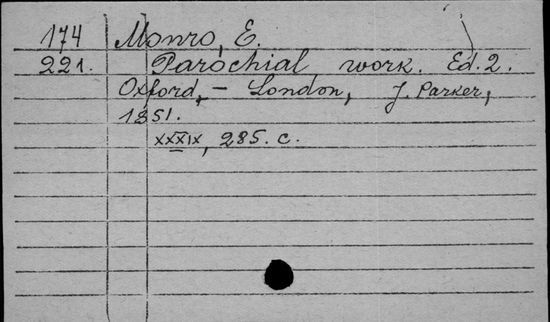 174 Monro, E.
221. Parochial work. Ed. 2.
Oxford, - London, J. Parker,
1851.
XXXIX, 285. c.